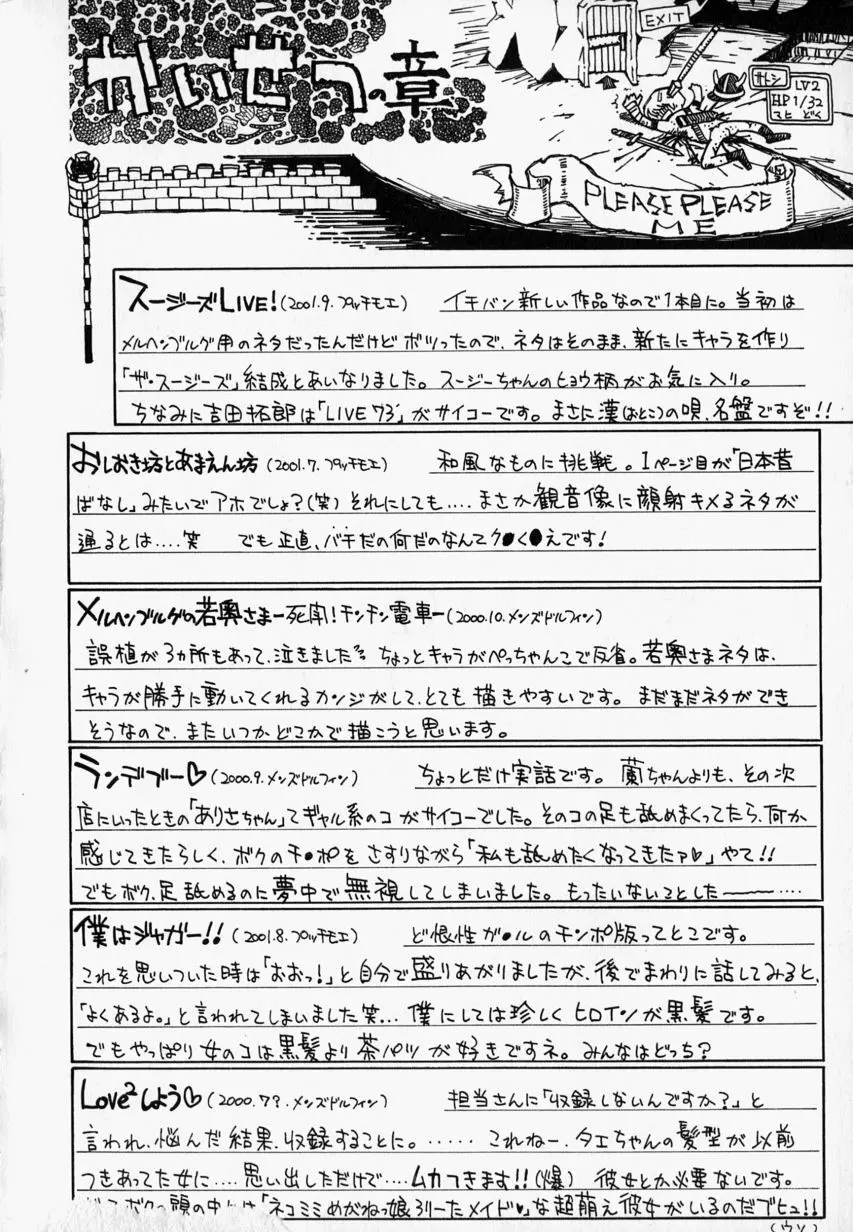 かいせつの章
EXIT
サトシ LV2
HP 1/32
PLEASE PLEASE
ME
スージーズLIVE!(2001.9.プッチモエ) イチバン新しい作品なので1本目に。当初は
メルヘンブルグ用のネタだったんだけどボツったので、ネタはそのまま、新たにキャラを作り
「ザ・スージーズ」結成とあいなりました。スージーちゃんのヒョウ柄がお気に入り。
ちなみに吉田拓郎は「LIVE 73'」がサイコーです。まさに漢(おとこ)の唄、名盤ですぞ!!
おしおき坊とあまえん坊(2001.7.プッチモエ) 和風なものに挑戦。1ページ目が「日本昔
ばなし」みたいでアホでしょ?(笑) それにしても‥‥まさか観音像に顔射キメるネタが
通るとは‥‥笑 でも正直、バチだの何だのなんてク●く●えです!
メルヘンブルグの若奥さまー死闘!チンチン電車ー(2000.10.メンズドルフィン)
誤植が3カ所もあって、泣きました ちょっとキャラがぺっちゃんこで反省。若奥さまネタは、
キャラが勝手に動いてくれるカンジがして、とても描きやすいです。まだまだネタができ
そうなので、またいつかどこかで描こうと思います。
ランデブー♡(2000.9.メンズドルフィン) ちょっとだけ実話です。蘭ちゃんよりも、その次
店にいったときの「ありさちゃん」てギャル系のコがサイコーでした。そのコの足も舐めまくってたら、何か
感じてきたらしく、ボクのチ●ポをさすりながら「私も舐めたくなってきたァ♥」やて!!
でもボク、足舐めるのに夢中で無視してしまいました。もったいないことした～‥‥
僕はジャガー!!(2001.8.プッチモエ) ど根性ガ●ルのチンポ版ってとこです。
これを思いついた時は「おおっ!」と自分で盛りあがりましたが、後でまわりに話してみると、
「よくあるよ。」と言われてしまいました笑… 僕にしては珍しくヒロインが黒髪です。
でもやっぱり女のコは黒髪より茶パツが好きですネ。みんなはどっち?
Love²しよう♡(2000.7?.メンズドルフィン) 担当さんに「収録しないんですか?」と
言われ、悩んだ結果、収録することに。‥‥‥これねー、タエちゃんの髪型が以前
つきあってた女に‥‥思い出しただけで‥‥ムカつきます!!(爆) 彼女とか必要ないです。
ボクの頭の中には「ネコミミめがねっ娘ろりーたメイド♥」な超萌え彼女がいるのだブヒュ!!
(ウソ)